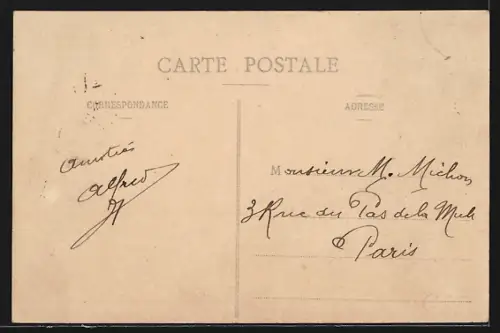 CARTE POSTALE
CORRESPONDANCE
ADRESSE
Amitiés
Alfred
Monsieur M. Michon
3 Rue du Pas de la Mule
Paris